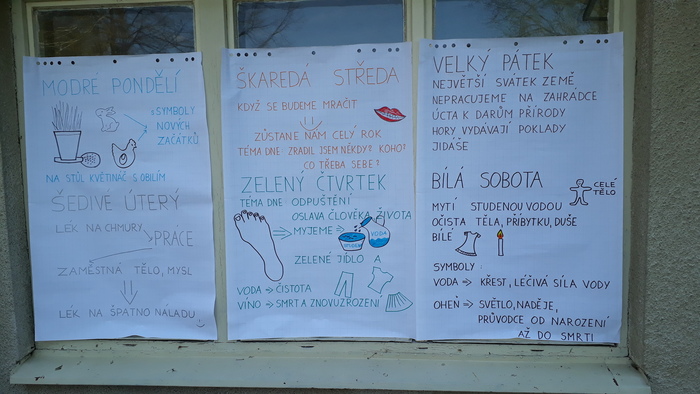 MODRÉ PONDĚLÍ
SYMBOLY
NOVÝCH
ZAČÁTKŮ
NA STŮL KVĚTINÁČ S OBILÍM
ŠEDIVÉ ÚTERÝ
LÉK NA CHMURY
PRÁCE
ZAMĚSTNÁ TĚLO, MYSL
LÉK NA ŠPATNO NÁLADU
ŠKAREDÁ STŘEDA
KDYŽ SE BUDEME MRAČIT
ZŮSTANE NÁM CELÝ ROK
TÉMA DNE: ZRADIL JSEM NĚKDY? KOHO?
CO TŘEBA SEBE?
ZELENÝ ČTVRTEK
TÉMA DNE ODPUŠTĚNÍ
OSLAVA ČLOVĚKA, ŽIVOTA
MYJEME
VODA
ZELENÉ JÍDLO A
VODA ⇒ ČISTOTA
VÍNO ⇒ SMRT A ZNOVUZROZENÍ
VELKÝ PÁTEK
NEJVĚTŠÍ SVÁTEK ZEMĚ
NEPRACUJEME NA ZAHRÁDCE
ÚCTA K DARŮM PŘÍRODY
HORY VYDÁVAJÍ POKLADY
JIDÁŠE
BÍLÁ SOBOTA
CELÉ
TĚLO
MYTÍ STUDENOU VODOU
OČISTA TĚLA, PŘÍBYTKU, DUŠE
BÍLÉ
SYMBOLY
VODA ⇒ KŘEST, LÉČIVÁ SÍLA VODY
OHEŇ ⇒ SVĚTLO, NADĚJE,
PRŮVODCE OD NAROZENÍ
AŽ DO SMRTI